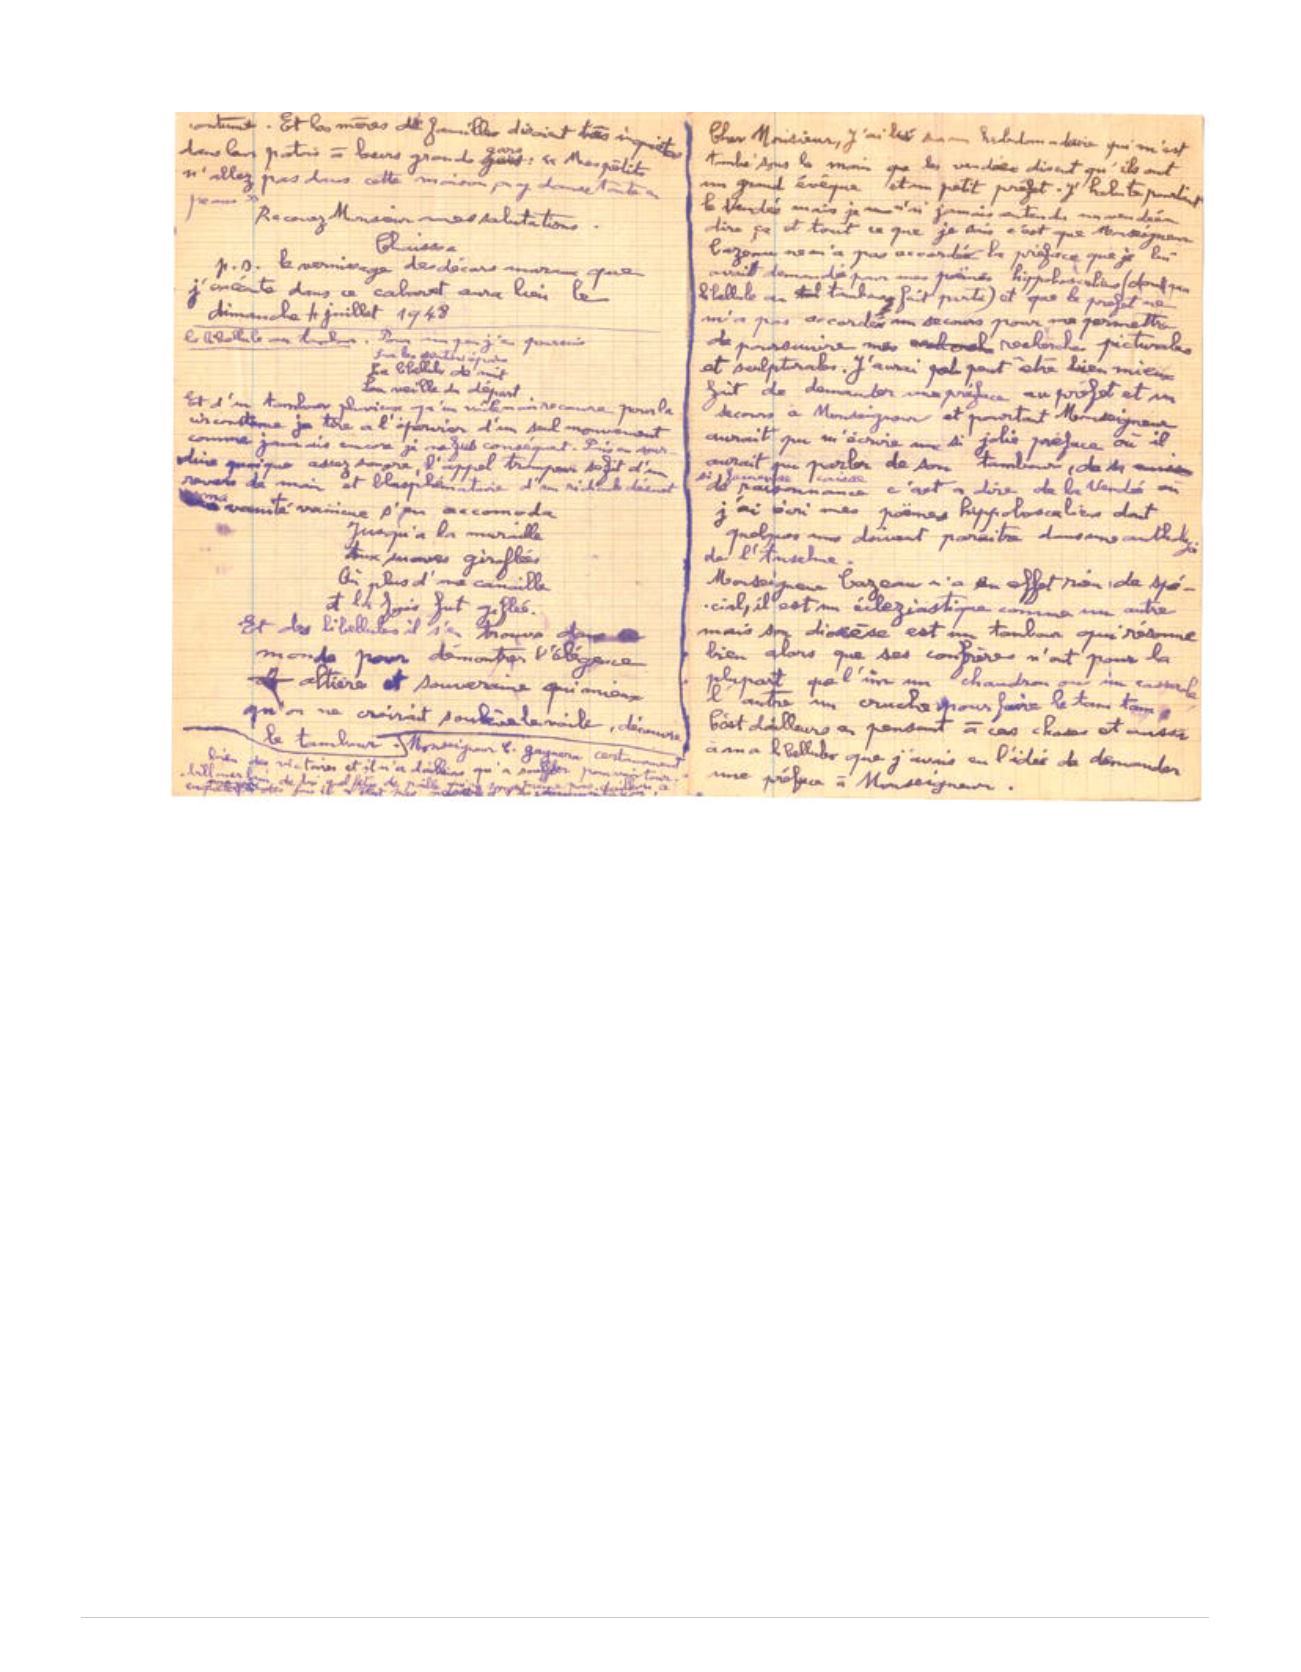 contume. Et les mères de familles disait très inquiètes
dans leur patois à leurs grands gars : « Mes pétits
n'allez pas dans cette maison, on y danse toute
Recevez Monsieur mes salutations.
Chaissac
p.s. le vernissage des décors muraux que
j'exécute dans ce cabaret aura lieu le
dimanche 4 juillet 1948
la libellule au tambour. Pour un peu j'en
La libellule de nuit
L'on veille du départ
Et d'un tambour pluvieux qu'un vilain recouvre pour la
circonstance je tire a l'épervier d'un seul mouvement
comme jamais encore je ne fus conséquent. Pris en sour-
dine quoique assez sonore, l'appel trompeur se fit d'un
revers de main et blasphématoire d'un ridicule désuet
ma vanité vraiment s'en accomoda
Jusqu'a la muraille
Aux suaves giroflées
Où plus d'une canaille
et la fois fut giflée.
Et des libellules il s'en trouva dans ce
monde pour démontrer l'élégance
altière et souveraine qui mieux
qu'on ne croirait soulève le voile, découvre
le tambour. Monseigneur C. gagnera certainement
bien des victoires et il n'a dailleurs qu'a souffler pour
Cher Monsieur, J'ai lu dans un hebdomadaire qui m'est
tombé sous la main que les vendéens disent qu'ils ont
un grand évêque et un petit préfet. J'habite pourtant
la Vendée mais je n'ai jamais entendu un vendéen
dire ça et tout ce que je sais c'est que Monseigneur
Cazeau ne m'a pas accordé la préface que je lui
avait demandé pour mes poèmes hippoboscaliens (dont ma
libellule au tambour fait partie) et que le préfet ne
m'a pas accordé un secours pour me permettre
de poursuivre mes recherches picturales
et sculpturales. J'aurai peut être bien mieux
fait de demander une préface au préfet et un
secours à Monseigneur et pourtant Monseigneur
aurait pu m'écrire une si jolie préface où il
aurait pu parler de son tambour, de sa
si fameuse caisse
de raisonnance c'est a dire de la Vendé où
j'ai écri mes poèmes hippoboscaliens dont
quelques uns doivent paraitre dans une anthologie
de l'Anselme.
Monseigneur Cazeau n'a en effet rien de spé-
cial, il est un écleziastique comme un autre
mais son diocèse est un tambour qui résonne
bien alors que ses confrères n'ont pour la
plupart que l'un un chaudron ou un casserole,
l'autre un cruche pour faire le tam tam.
C'est dailleurs en pensant à ces choses et aussi
à ma libellule que j'avais eu l'idée de demander
une préface à Monseigneur.